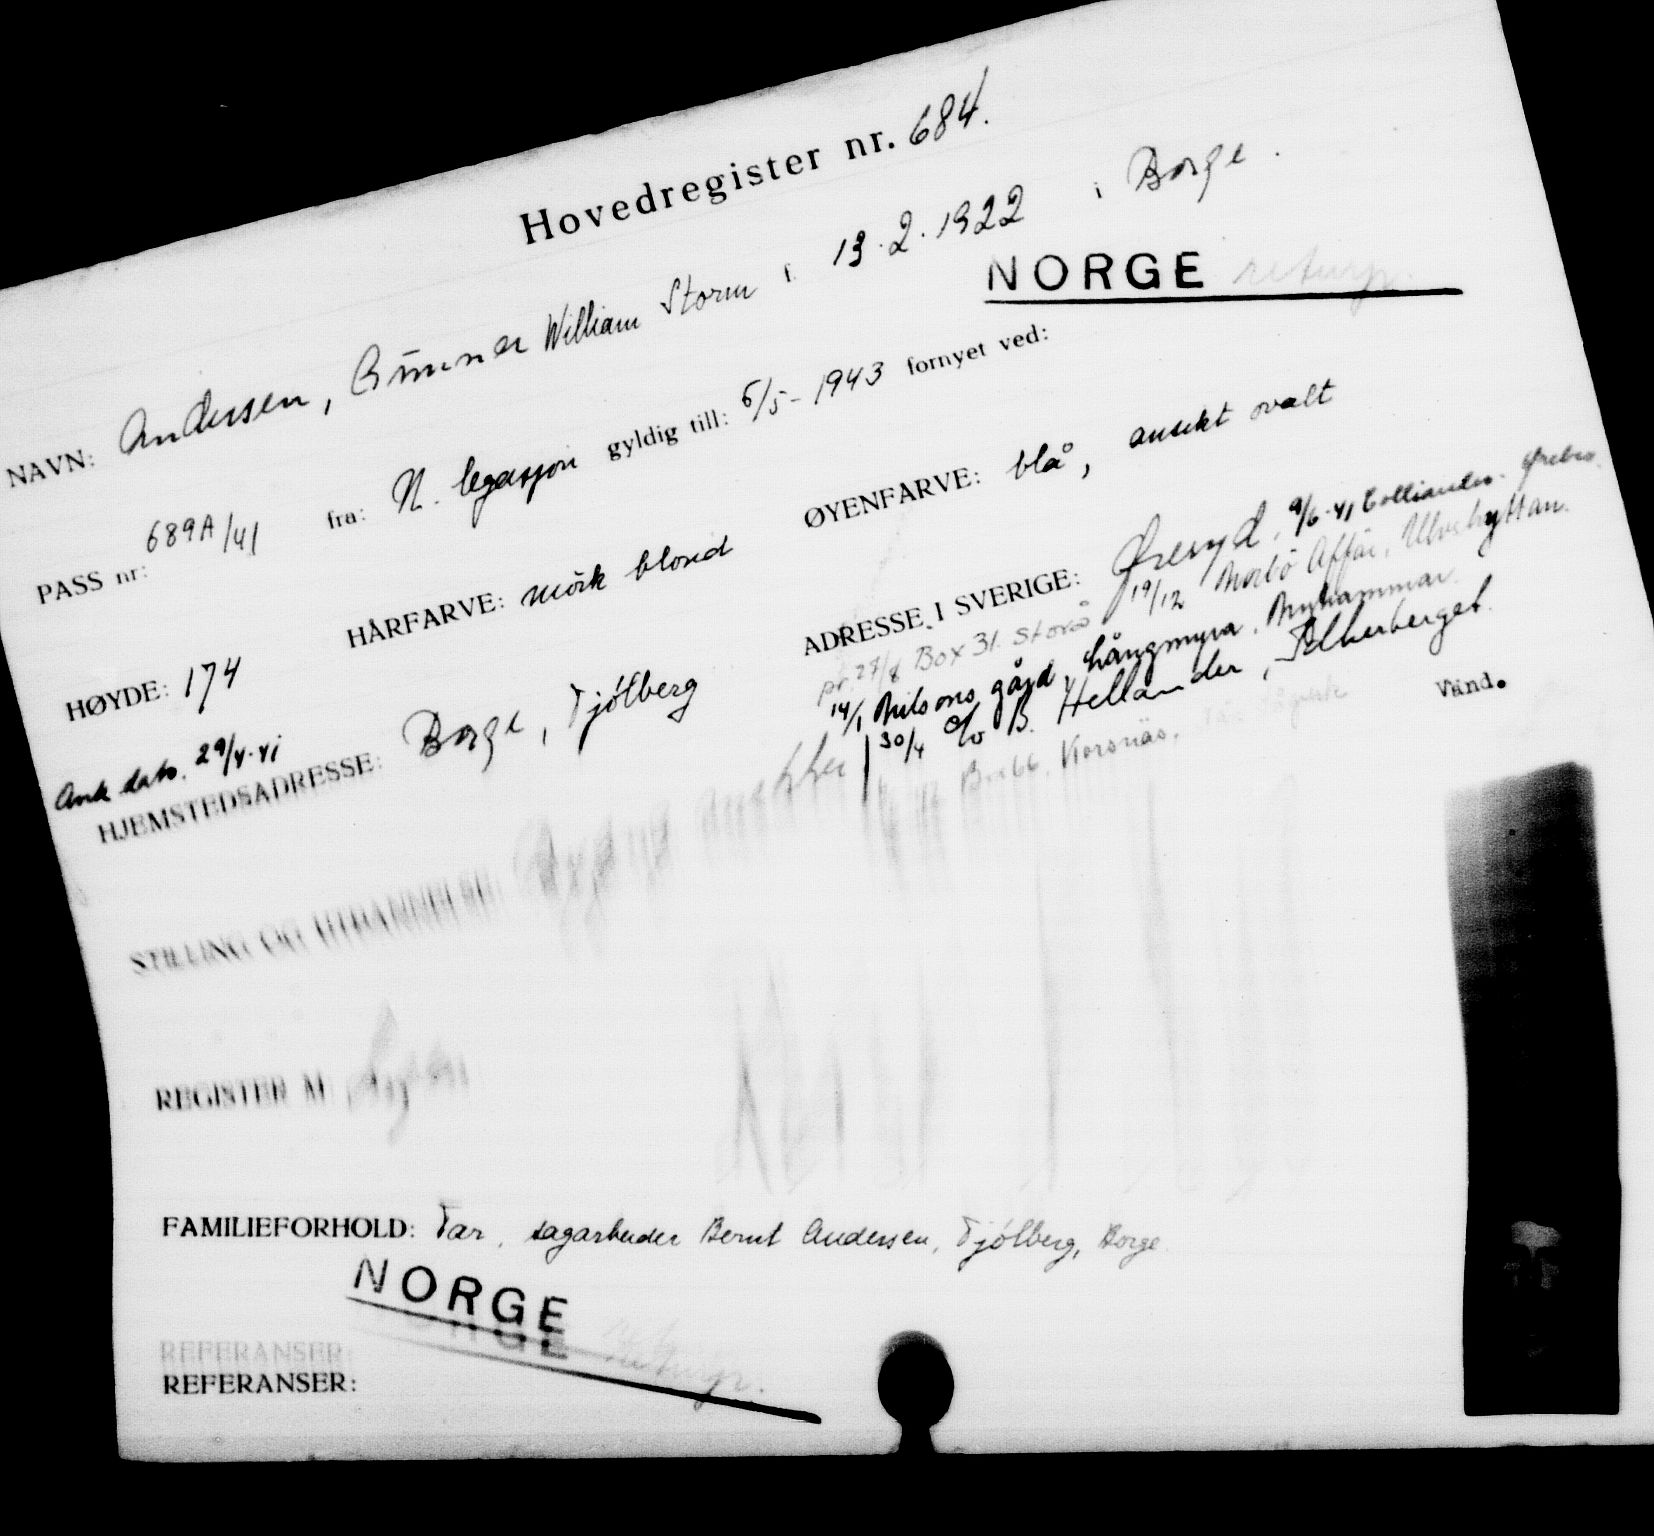 Hovedregister nr. 684.
NAVN: Andersen, Gunnar William Storm f. 13.2.1922 i Borge.
NORGE returp.
PASS nr: 689A/41 fra: N. legasjon gyldig till: 5/5-1943 fornyet ved:
HØYDE: 174 HÅRFARVE: mörk blond ØYENFARVE: blå, ansikt ovalt
Ank dato. 29/4-41
HJEMSTEDSADRESSE: Borge, Tjølberg
ADRESSE I SVERIGE: Øreryd, 9/6-41 Collianders. Ørebro.
pr. 27/8 Box 31. Storå 19/12 Affär, Ulvshyttan.
14/1 Nilsons gård, Långmyra,
30/4 c/o B. Hellander, Falkerberget.
Korsnäs.
Vänd.
STILLING OG UTDANNELSE:
REGISTER M
FAMILIEFORHOLD: Far, sagarbeider Bernt Andersen, Tjølberg, Borge
NORGE returp.
REFERANSER:
REFERANSER: